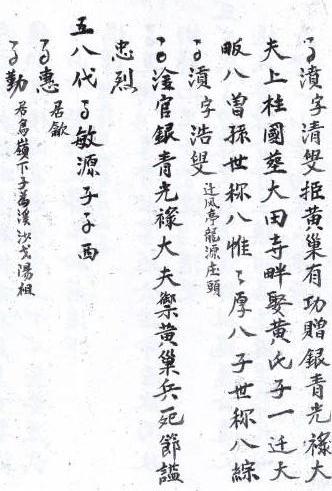 濆字清叟拒黃巢有功贈銀青光祿大
夫上柱國塟大田寺畔娶黃氏子一迁大
畈八曾孫世称八惟〻厚八子世称八綜
字浩叟 迁凤亭龍源庄頭
淦官銀青光祿大夫禦黃巢兵死節謚
忠烈
五八代 敏源子 西
惠 居歙
勤 居烏嶺下子萬溪沙戈陽祖